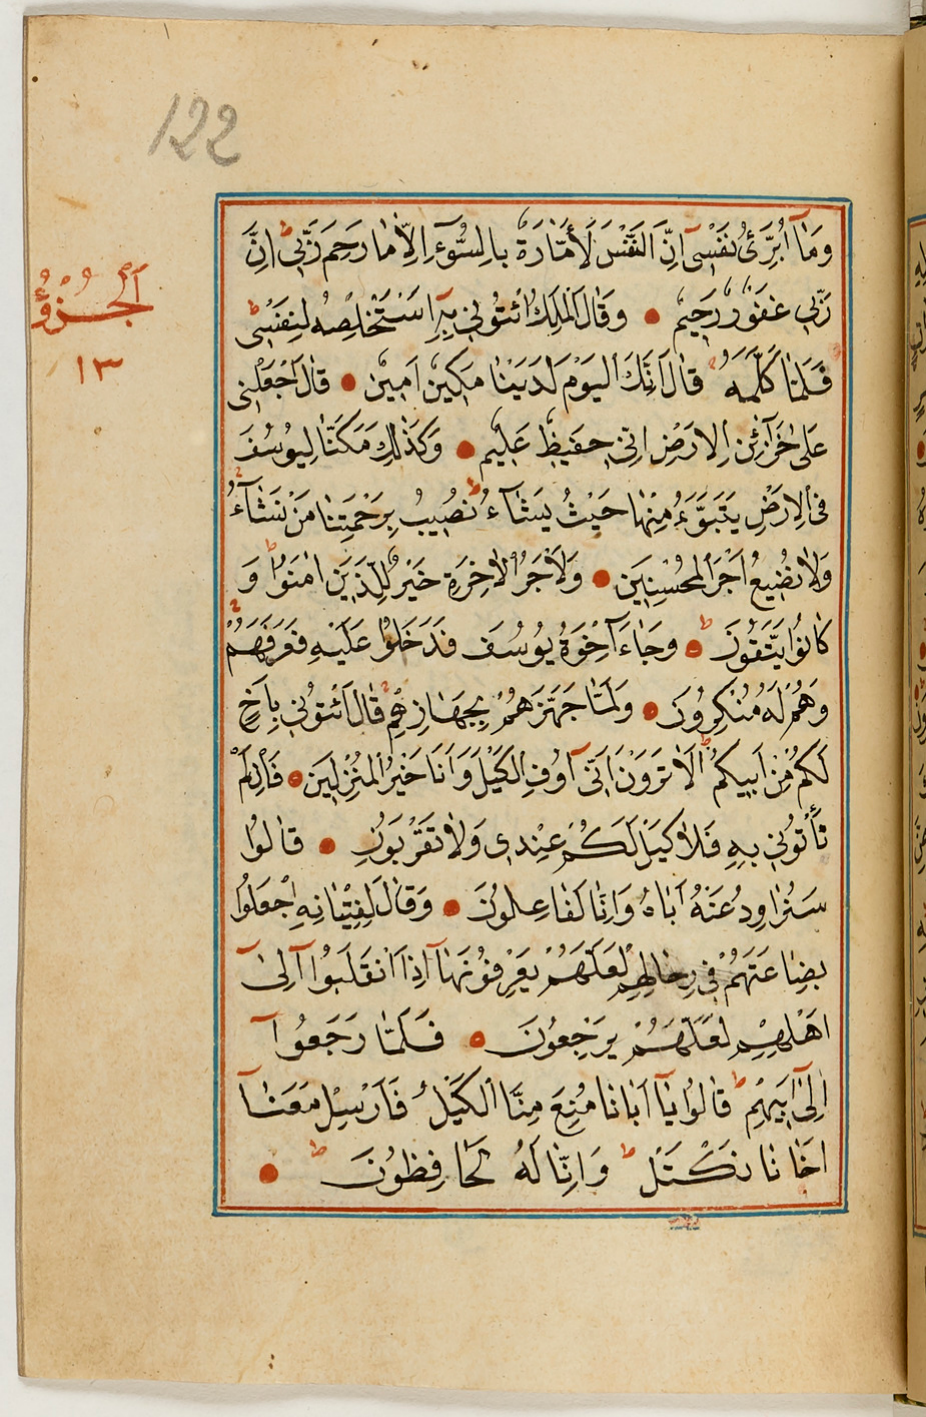 122
وَمَآ اُبَرِّئُ نَفْسٖى اِنَّ النَّفْسَ لَاَمَّارَةٌ بِالسُّوٓءِ اِلَّا مَا رَحِمَ رَبّٖى اِنَّ
رَبّٖى غَفُورٌ رَحٖيمٌ وَقَالَ الْمَلِكُ ائْتُونٖى بِهٖٓ اَسْتَخْلِصْهُ لِنَفْسٖى
اَلْجُزْؤُ
١٣
فَلَمَّا كَلَّمَهُ قَالَ اِنَّكَ الْيَوْمَ لَدَيْنَا مَكٖينٌ اَمٖينٌ قَالَ اجْعَلْنٖى
عَلٰى خَزَٓائِنِ الْاَرْضِ اِنّٖى حَفٖيظٌ عَلٖيمٌ وَكَذٰلِكَ مَكَّنَّا لِيُوسُفَ
فِى الْاَرْضِ يَتَبَوَّءُ مِنْهَا حَيْثُ يَشَٓاءُ نُصٖيبُ بِرَحْمَتِنَا مَنْ نَشَٓاءُ
وَلَا نُضٖيعُ اَجْرَ الْمُحْسِنٖينَ وَلَاَجْرُ الْاٰخِرَةِ خَيْرٌ لِلَّذٖينَ اٰمَنُوا وَ
كَانُوا يَتَّقُونَ وَجَٓاءَ اِخْوَةُ يُوسُفَ فَدَخَلُوا عَلَيْهِ فَعَرَفَهُمْ
وَهُمْ لَهُ مُنْكِرُونَ وَلَمَّا جَهَّزَهُمْ بِجَهَازِهِمْ قَالَ ائْتُونٖى بِاَخٍ
لَكُمْ مِنْ اَبٖيكُمْ اَلَا تَرَوْنَ اَنّٖٓى اُوفِى الْكَيْلَ وَاَنَا خَيْرُ الْمُنْزِلٖينَ فَاِنْ لَمْ
تَأْتُونٖى بِهٖ فَلَا كَيْلَ لَكُمْ عِنْدٖى وَلَا تَقْرَبُونِ قَالُوا
سَنُرَاوِدُ عَنْهُ اَبَاهُ وَاِنَّا لَفَاعِلُونَ وَقَالَ لِفِتْيَانِهِ اجْعَلُوا
بِضَاعَتَهُمْ فٖى رِحَالِهِمْ لَعَلَّهُمْ يَعْرِفُونَهَٓا اِذَا انْقَلَبُٓوا اِلٰٓى
اَهْلِهِمْ لَعَلَّهُمْ يَرْجِعُونَ فَلَمَّا رَجَعُٓوا
اِلٰٓى اَبٖيهِمْ قَالُوا يَٓا اَبَانَا مُنِعَ مِنَّا الْكَيْلُ فَاَرْسِلْ مَعَنَٓا
اَخَانَا نَكْتَلْ وَاِنَّا لَهُ لَحَافِظُونَ